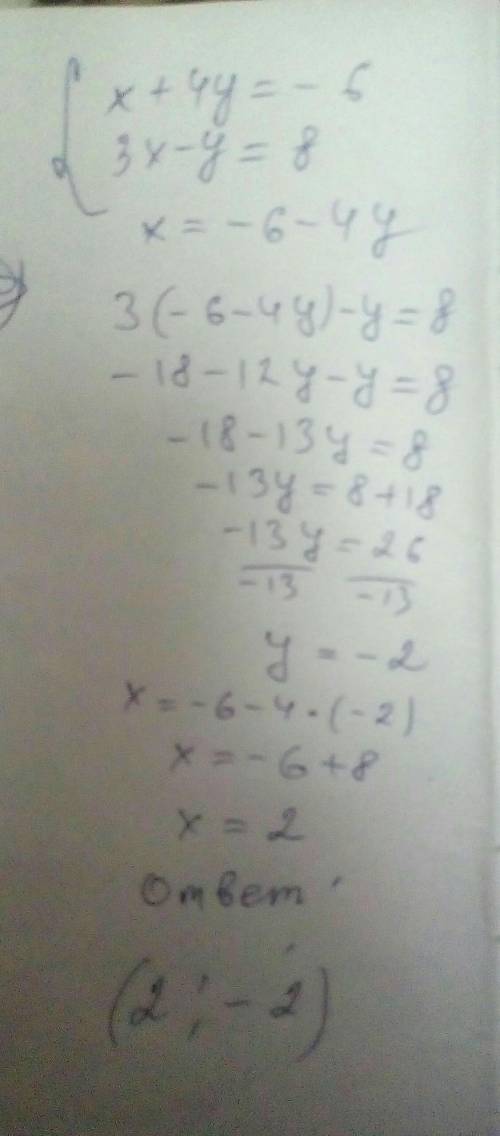 x + 4y = - 6
3x - y = 8
x = - 6 - 4y
3(- 6 - 4y) - y = 8
- 18 - 12y - y = 8
- 18 - 13y = 8
- 13y = 8 + 18
- 13y = 26
-13 -13
y = - 2
x = - 6 - 4 · (- 2)
x = - 6 + 8
x = 2
Ответ :
(2 ; - 2)